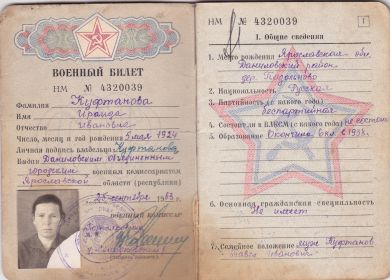 ВОЕННЫЙ БИЛЕТ
НМ № 4320039
Фамилия Куфтанова
Имя Ираида
Отчество Ивановна
Число, месяц и год рождения 5 мая 1924
Личная подпись владельца Куфтанова
Выдан Даниловским объединенным
городским военным комиссариатом
Ярославской области (республики)
сентября
Военный комиссар
НМ № 4320039
1
I. Общие сведения
1. Место рождения Ярославская обл.
Даниловский район
дер.
2. Национальность Русская
3. Партийность (с какого года)
беспартийная
4. Состоял ли в ВЛКСМ (с какого года) не состояла
5. Образование Окончила 6 кл. в 1938г.
6. Основная гражданская специальность
Не имеет
7. Семейное положение муж Куфтанов
Иванович